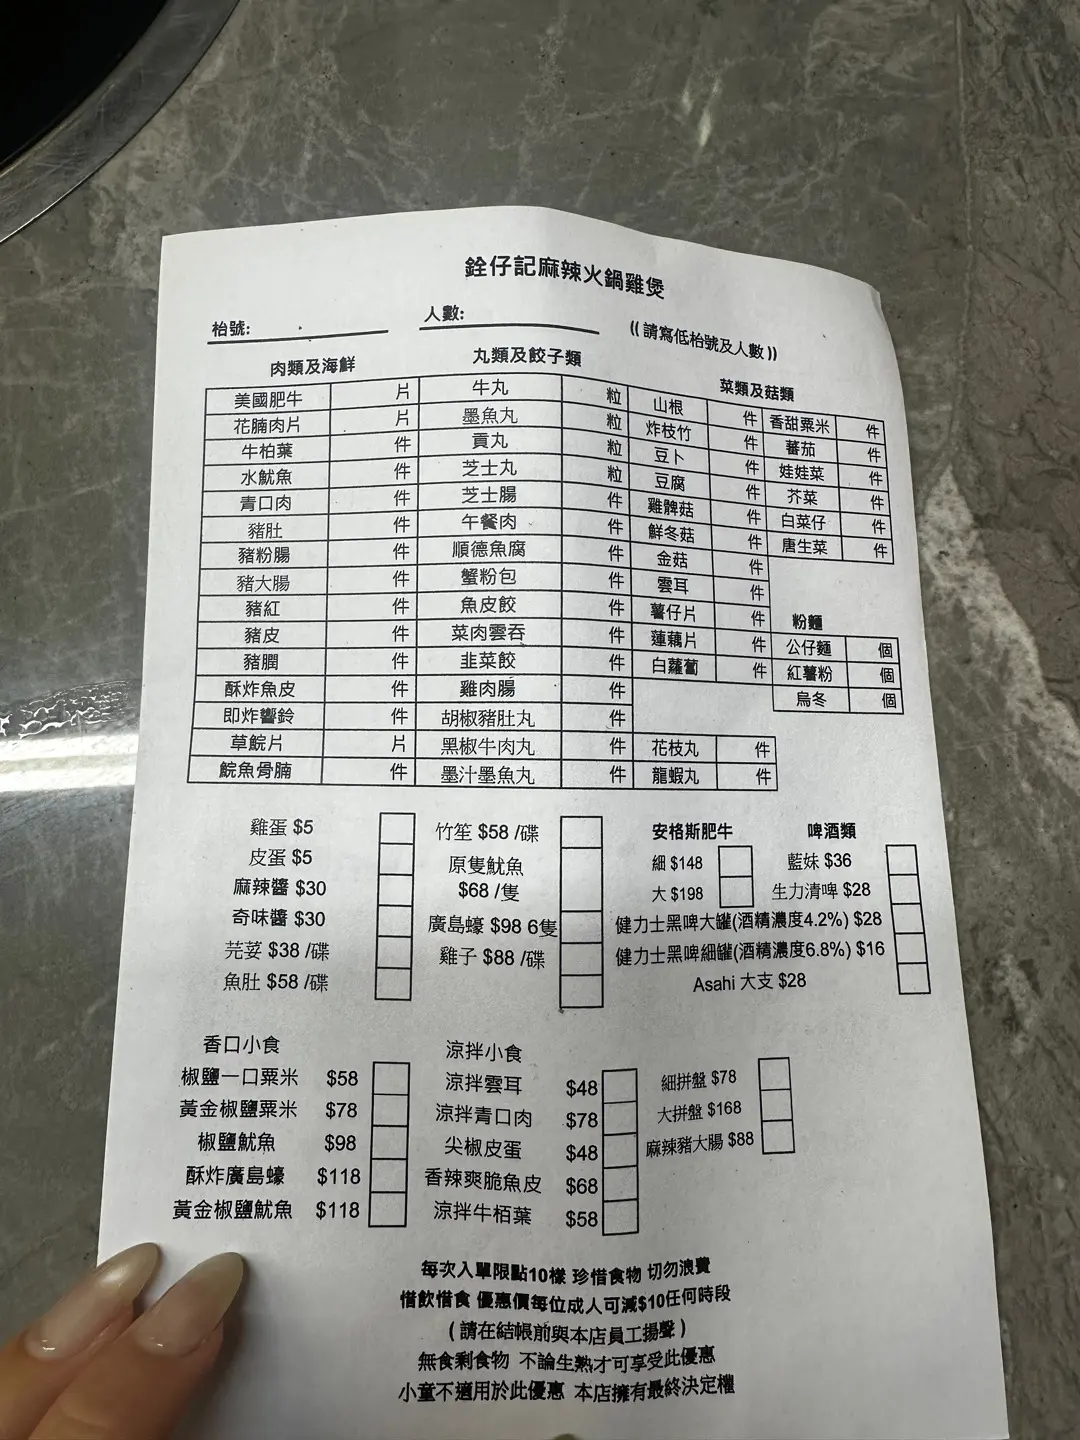 銓仔記麻辣火鍋雞煲
枱號:
人數:
((請寫低枱號及人數))
肉類及海鮮
美國肥牛 片
花腩肉片 片
牛柏葉 件
水魷魚 件
青口肉 件
豬肚 件
豬粉腸 件
豬大腸 件
豬紅 件
豬皮 件
豬膶 件
酥炸魚皮 件
即炸響鈴 件
草鯇片 片
鯇魚骨腩 件
丸類及餃子類
牛丸 粒
墨魚丸 粒
貢丸 粒
芝士丸 粒
芝士腸 件
午餐肉 件
順德魚腐 件
蟹粉包 件
魚皮餃 件
菜肉雲吞 件
韭菜餃 件
雞肉腸 件
胡椒豬肚丸 件
黑椒牛肉丸 件
墨汁墨魚丸 件
菜類及菇類
山根 件
炸枝竹 件
豆卜 件
豆腐 件
雞髀菇 件
鮮冬菇 件
金菇 件
雲耳 件
薯仔片 件
蓮藕片 件
白蘿蔔 件
花枝丸 件
龍蝦丸 件
香甜粟米 件
蕃茄 件
娃娃菜 件
芥菜 件
白菜仔 件
唐生菜 件
粉麵
公仔麵 個
紅薯粉 個
烏冬 個
雞蛋 $5
皮蛋 $5
麻辣醬 $30
奇味醬 $30
芫荽 $38 /碟
魚肚 $58 /碟
竹笙 $58 /碟
原隻魷魚
$68 /隻
廣島蠔 $98 6隻
雞子 $88 /碟
安格斯肥牛
細 $148
大 $198
啤酒類
藍妹 $36
生力清啤 $28
健力士黑啤大罐(酒精濃度4.2%) $28
健力士黑啤細罐(酒精濃度6.8%) $16
Asahi 大支 $28
香口小食
椒鹽一口粟米 $58
黃金椒鹽粟米 $78
椒鹽魷魚 $98
酥炸廣島蠔 $118
黃金椒鹽魷魚 $118
涼拌小食
涼拌雲耳 $48
涼拌青口肉 $78
尖椒皮蛋 $48
香辣爽脆魚皮 $68
涼拌牛栢葉 $58
細拼盤 $78
大拼盤 $168
麻辣豬大腸 $88
每次入單限點10樣 珍惜食物 切勿浪費
惜飲惜食 優惠價每位成人可減$10任何時段
(請在結帳前與本店員工揚聲)
無食剩食物 不論生熟才可享受此優惠
小童不適用於此優惠 本店擁有最終決定權